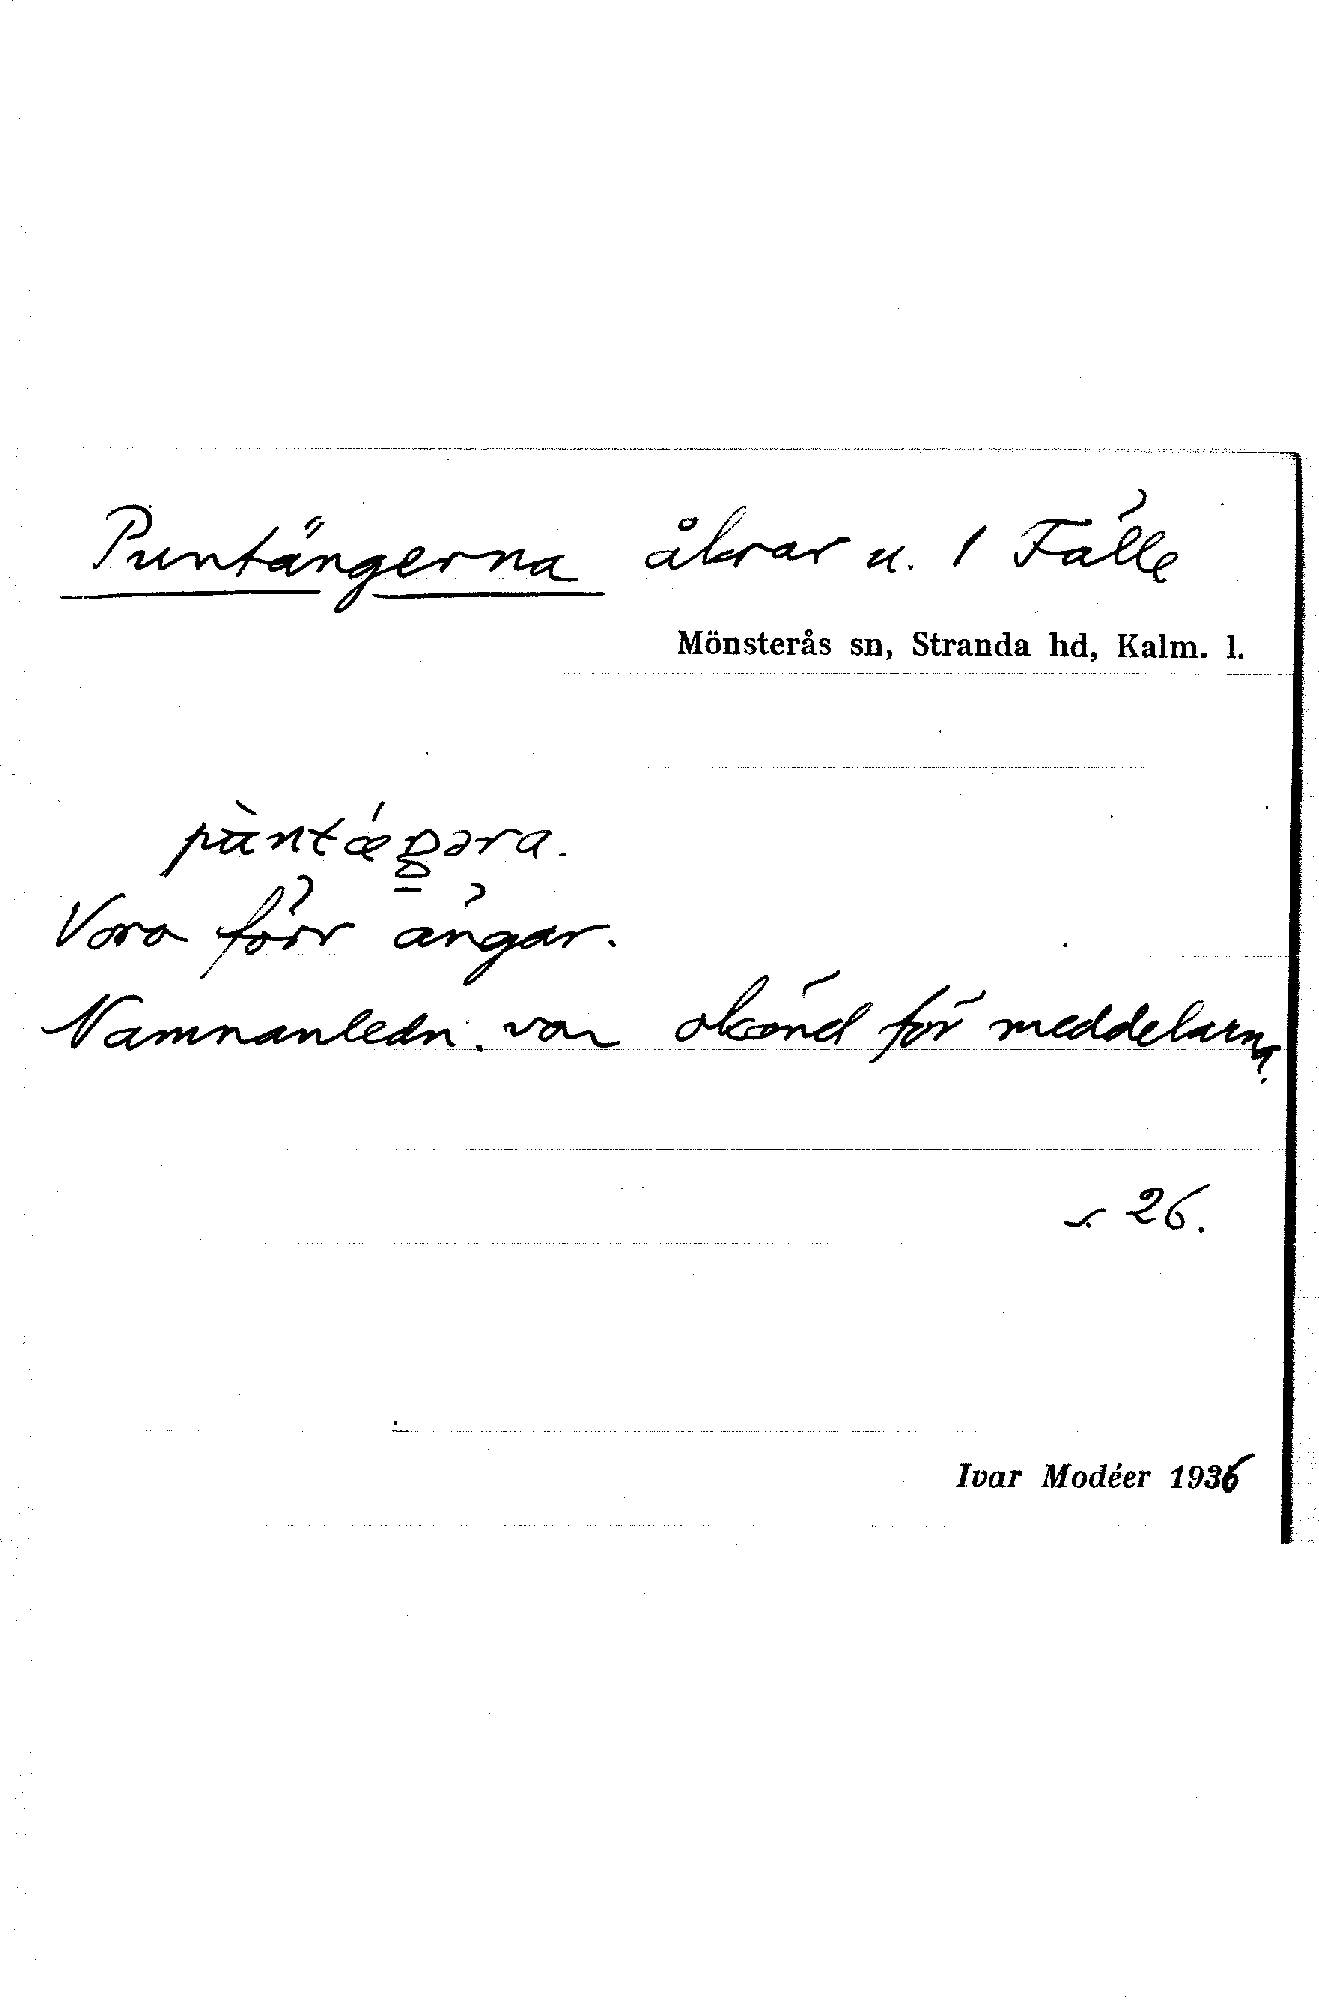 Puntängerna åkrar u. 1 Fålle
Mönsterås sn, Stranda hd, Kalm. l.
Voro förr ängar.
Namnanledn. var okänd för meddelarna.
26.
Ivar Modéer 1936